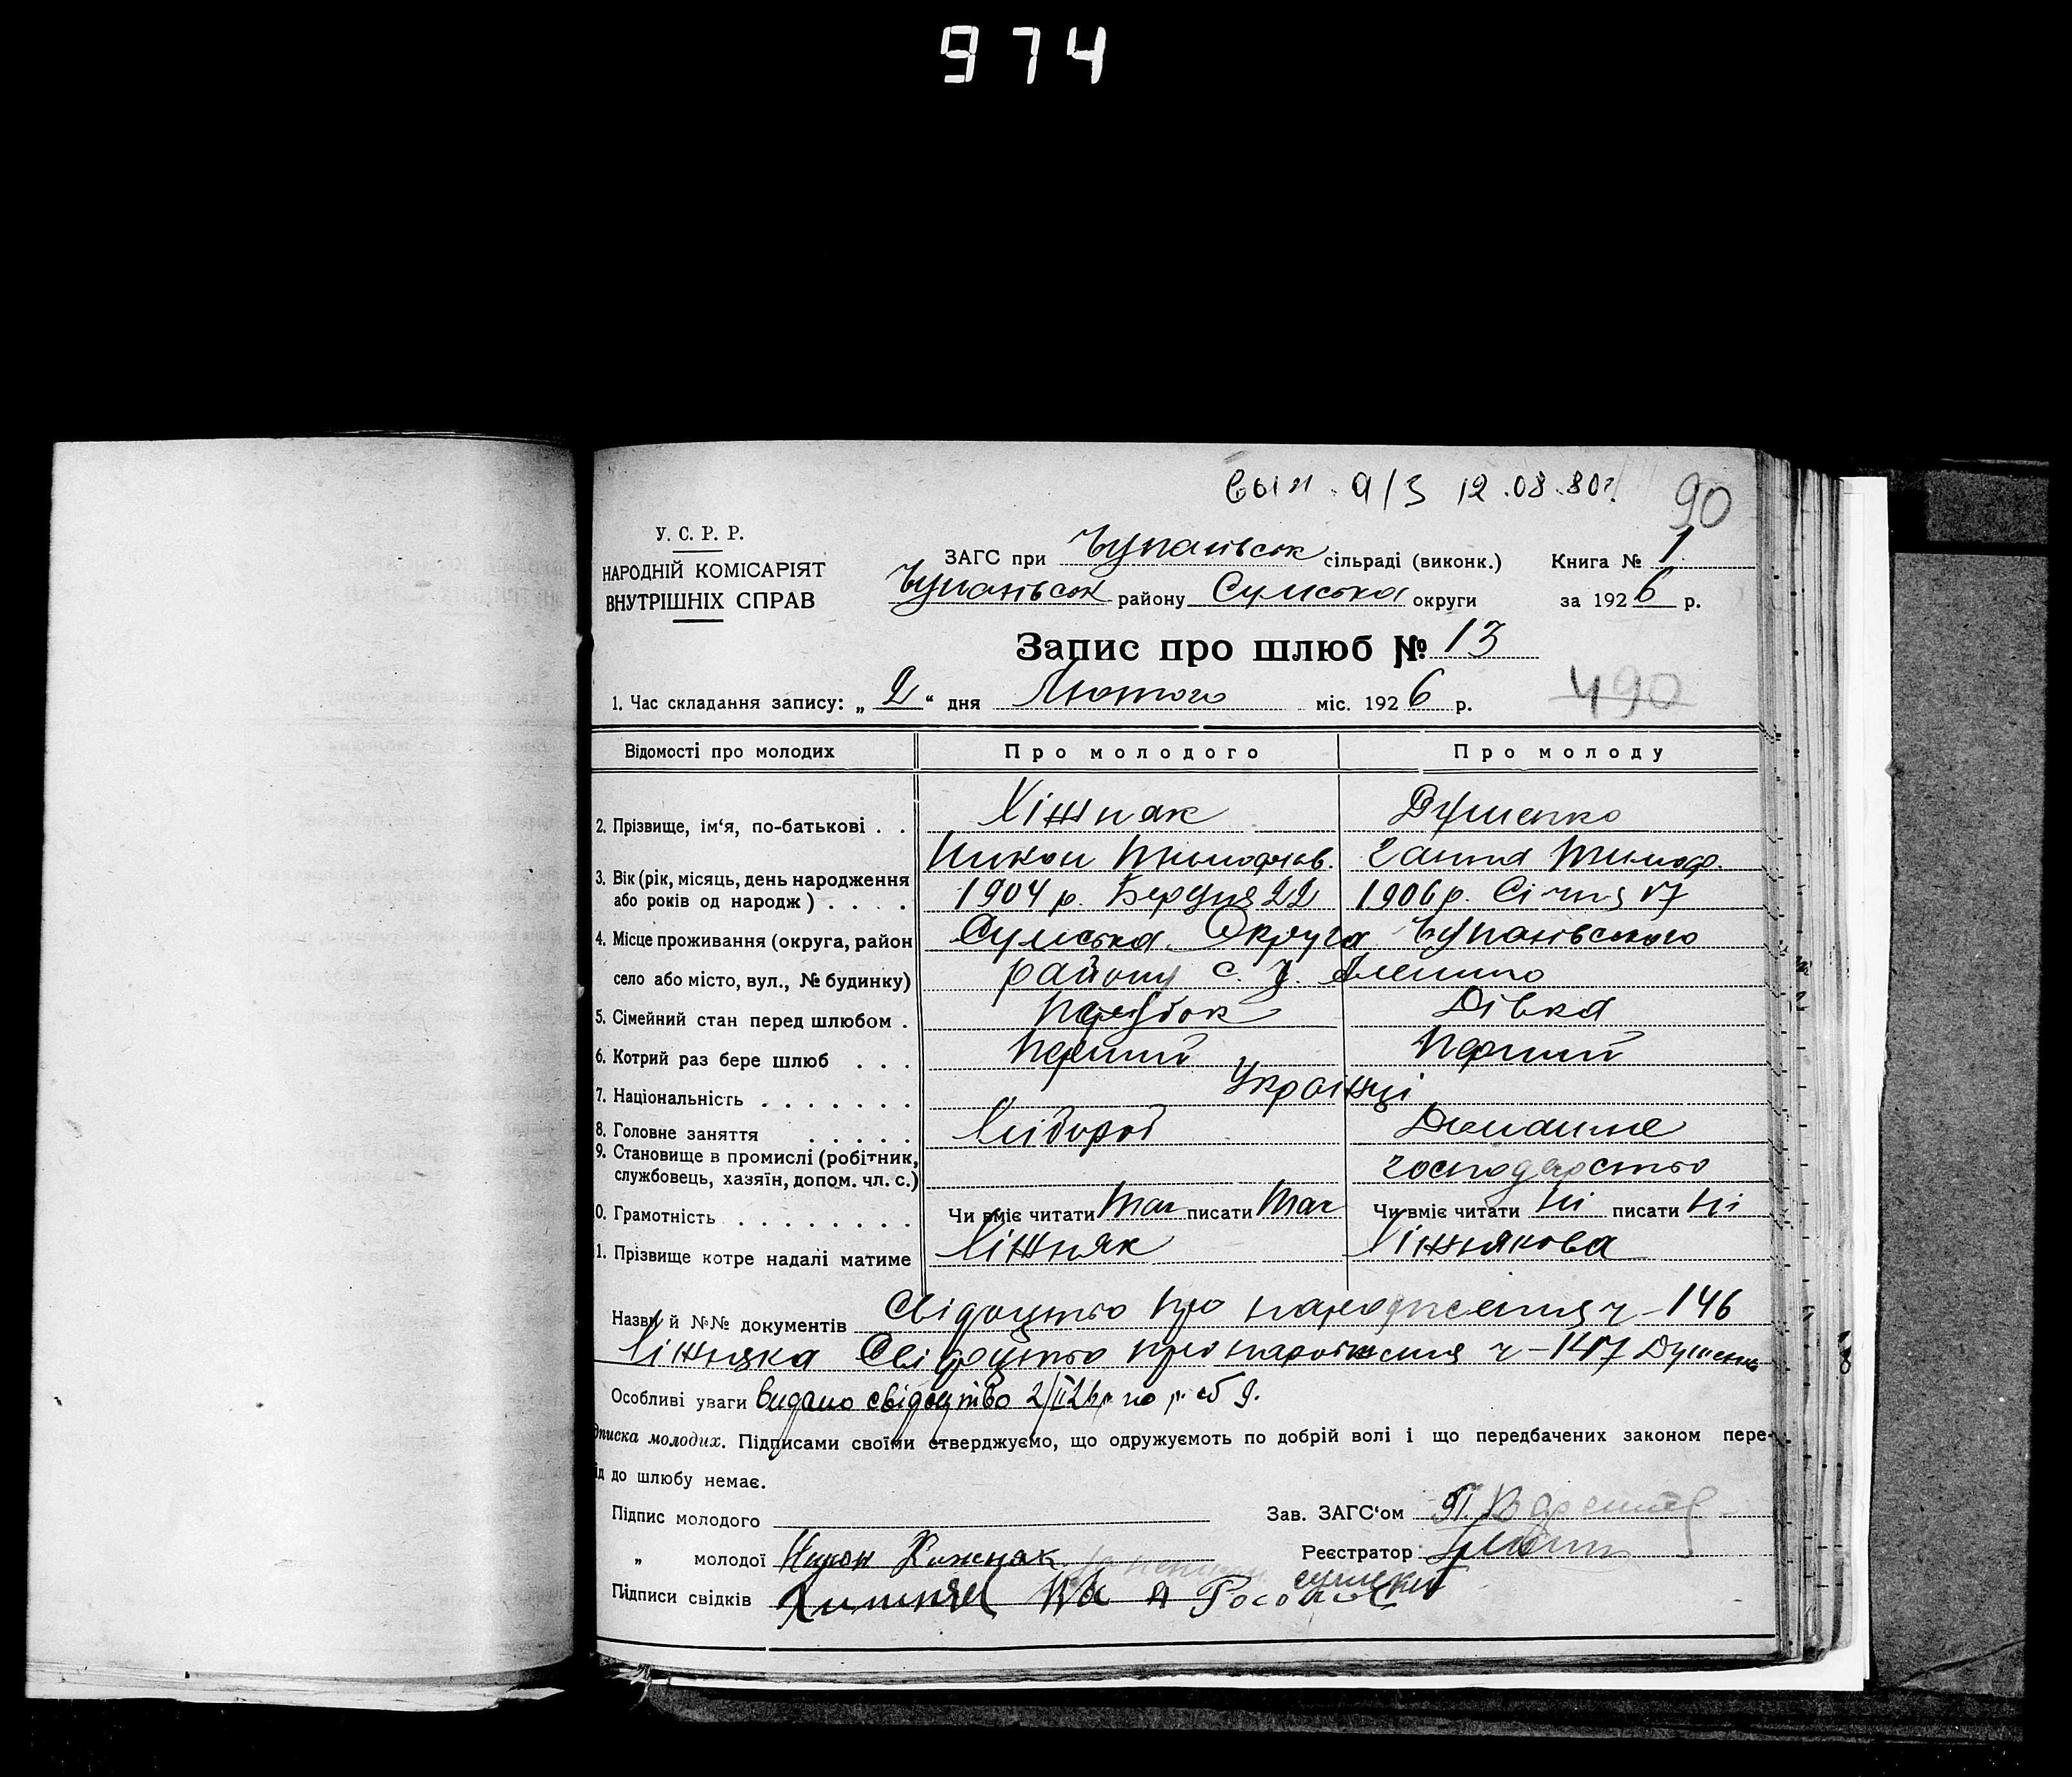 974
вып. а/з 12.08.80г.
90
У. С. Р. Р.
НАРОДНІЙ КОМІСАРІЯТ
ВНУТРІШНІХ СПРАВ
ЗАГС при Чупахівськ сільраді (виконк.) Книга № 1
Чупахівськ району Сумська округи за 1926 р.
Запис про шлюб № 13
1. Час складання запису: „2“ дня Лютого міс. 1926 р.
490
Відомості про молодих Про молодого Про молоду
2. Прізвище, ім‘я, по-батькові . . Хіжняк Душенко
Никон Тимофіев. Ганна Тимоф.
3. Вік (рік, місяць, день народження
або років од народж) . . . . 1904 р. Березня 22 1906 р. Січня 17
4. Місце проживання (округа, район Сумська Округа Чупахівського
село або місто, вул., № будинку) району с.
5. Сімейний стан перед шлюбом . Парубок Дівка
6. Котрий раз бере шлюб . . . Перший Перший
7. Національність . . . . . . . Українці
8. Головне заняття . . . . . Хлібороб Домашне
9. Становище в промислі (робітник,
службовець, хазяїн, допом. чл. с.) господарство
0. Грамотність . . . . . . . . Чи вміє читати Так писати Так Чи вміє читати Ні писати Ні
1. Прізвище котре надалі матиме Хіжняк Хіжнякова
Назви й №№ документів Свідоцтво про народження ч – 146
Хіжняка Свідоцтво про народження ч – 147 Душенко
Особливі уваги Видано свідоцтво 2/II 26р. по
дписка молодих. Підписами своїми стверджуємо, що одружуємоть по добрій волі і що передбачених законом пере-
ід до шлюбу немає.
Підпис молодого Зав. ЗАГС‘ом
„ молодої Никон Хижняк Реєстратор
Підписи свідків